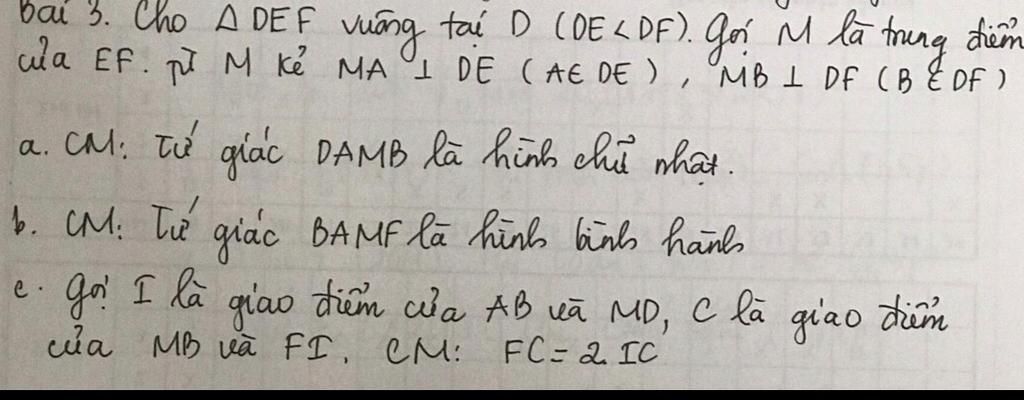 Bài 3. Cho Δ DEF vuông tại D (DE < DF). Gọi M là trung điểm
của EF. Từ M kẻ MA ⊥ DE (A ∈ DE), MB ⊥ DF (B ∈ DF)
a. CM: Tứ giác DAMB là hình chữ nhật.
b. CM: Tứ giác BAMF là hình bình hành
c. Gọi I là giao điểm của AB và MD, C là giao điểm
của MB và FI. CM: FC = 2 IC